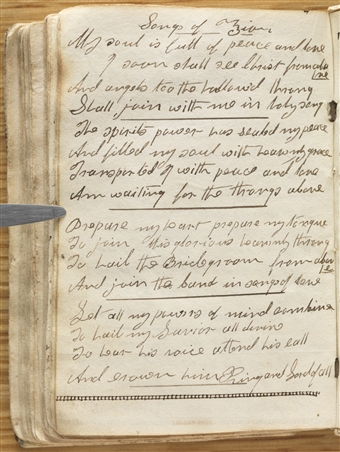 Songs of Zion
My soul is full of peace and love
I soon shall see Christ from above
And angels too the hallow'd throng
Shall join with me in holy song
The spirits power has sealed my peace
And filled my soul with heavenly grace
Transported I with peace and love
Am waiting for the throngs above
Prepare my heart prepare my tongue
To join this glorious heavenly throng
To hail the Bridegroom from above
And join the band in songs of love
Let all my powers of mind combine
To hail my Savior all divine
To hear his voice attend his call
And crown him King and Lord of all